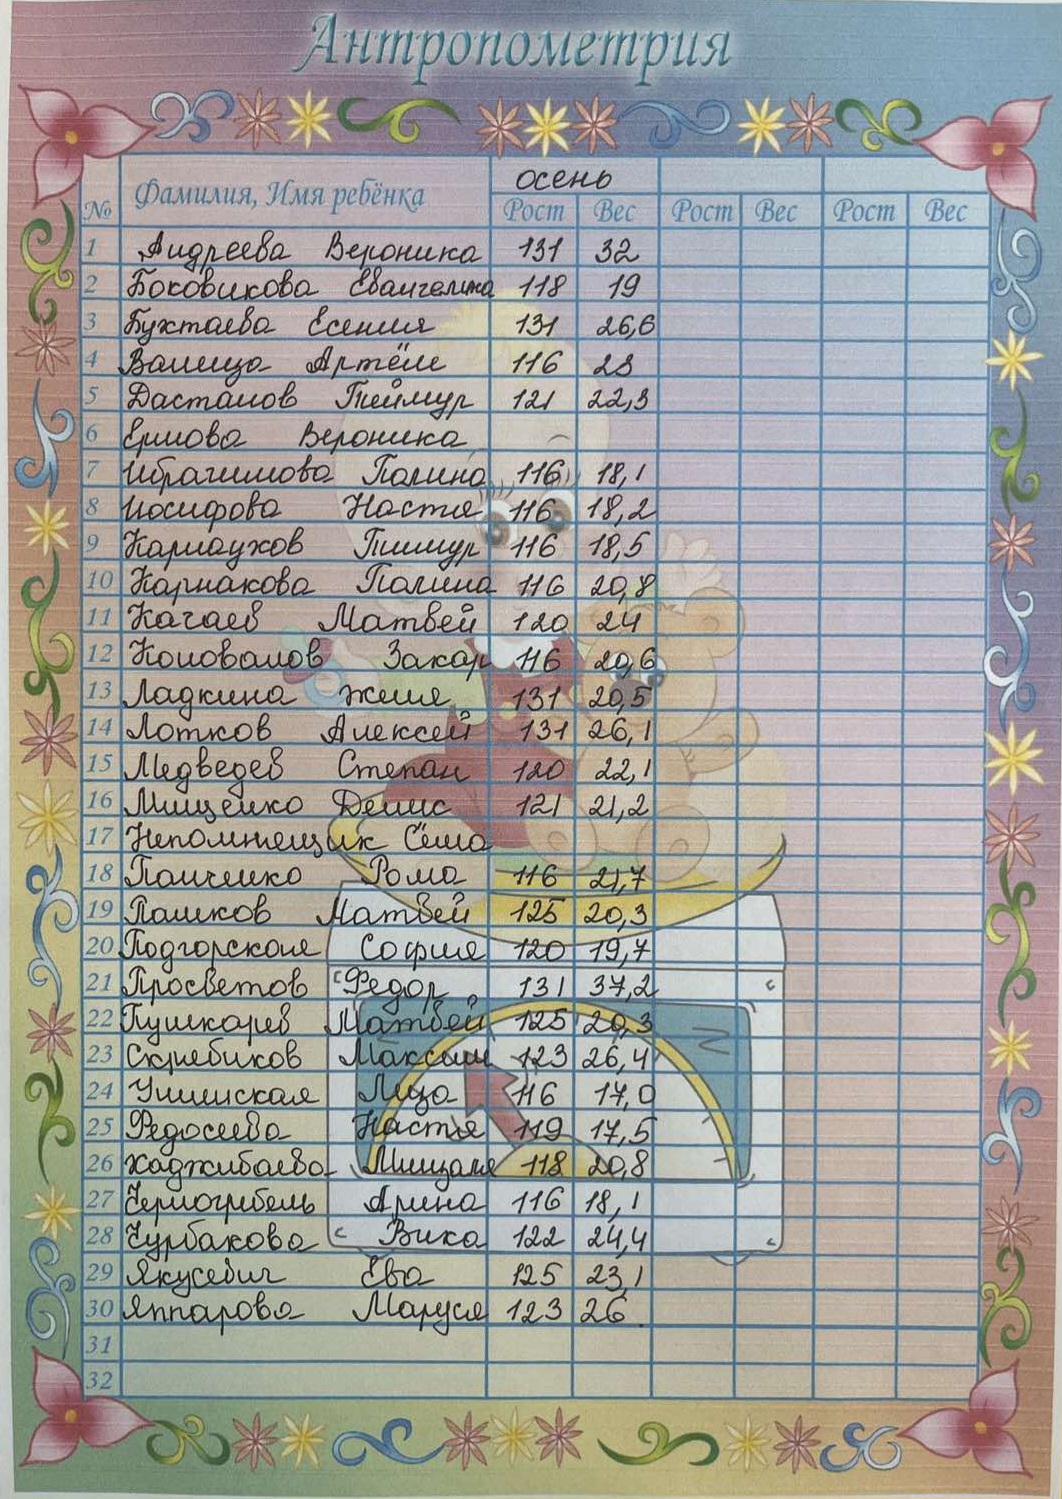 Антропометрия
осень
№ Фамилия, Имя ребёнка Рост Вес Рост Вес Рост Вес
1 Андреева Вероника 131 32
2 Боковикова Евангелина 118 19
3 Бухтаева Есения 131 26,6
4 Ваница Артём 116 23
5 Дастанов Теймур 121 22,3
6 Ермова Вероника
7 Ибрагимова Полина 116 18,1
8 Иосифова Настя 116 18,2
9 Карнаухов Тимур 116 18,5
10 Карнакова Полина 116 20,8
11 Качаев Матвей 120 24
12 Коновалов Захар 116 20,6
13 Ладкина Женя 131 20,5
14 Лотков Алексей 131 26,1
15 Медведев Степан 120 22,1
16 Мищенко Денис 121 21,2
17 Непомнещик Сёма
18 Панченко Рома 116 21,7
19 Пашков Матвей 125 20,3
20 Подгорская София 120 19,7
21 Просветов Федор 131 37,2
22 Пушкарев Матвей 125 20,3
23 Скребиков Максим 123 26,4
24 Ушинская Лиза 116 17,0
25 Федосеева Настя 119 17,5
26 Хаджибаева 118 20,8
27 Черногребель Арина 116 18,1
28 Чурбакова Вика 122 24,4
29 Якусевич Ева 125 23,1
30 Яппарова Маруся 123 26
31
32